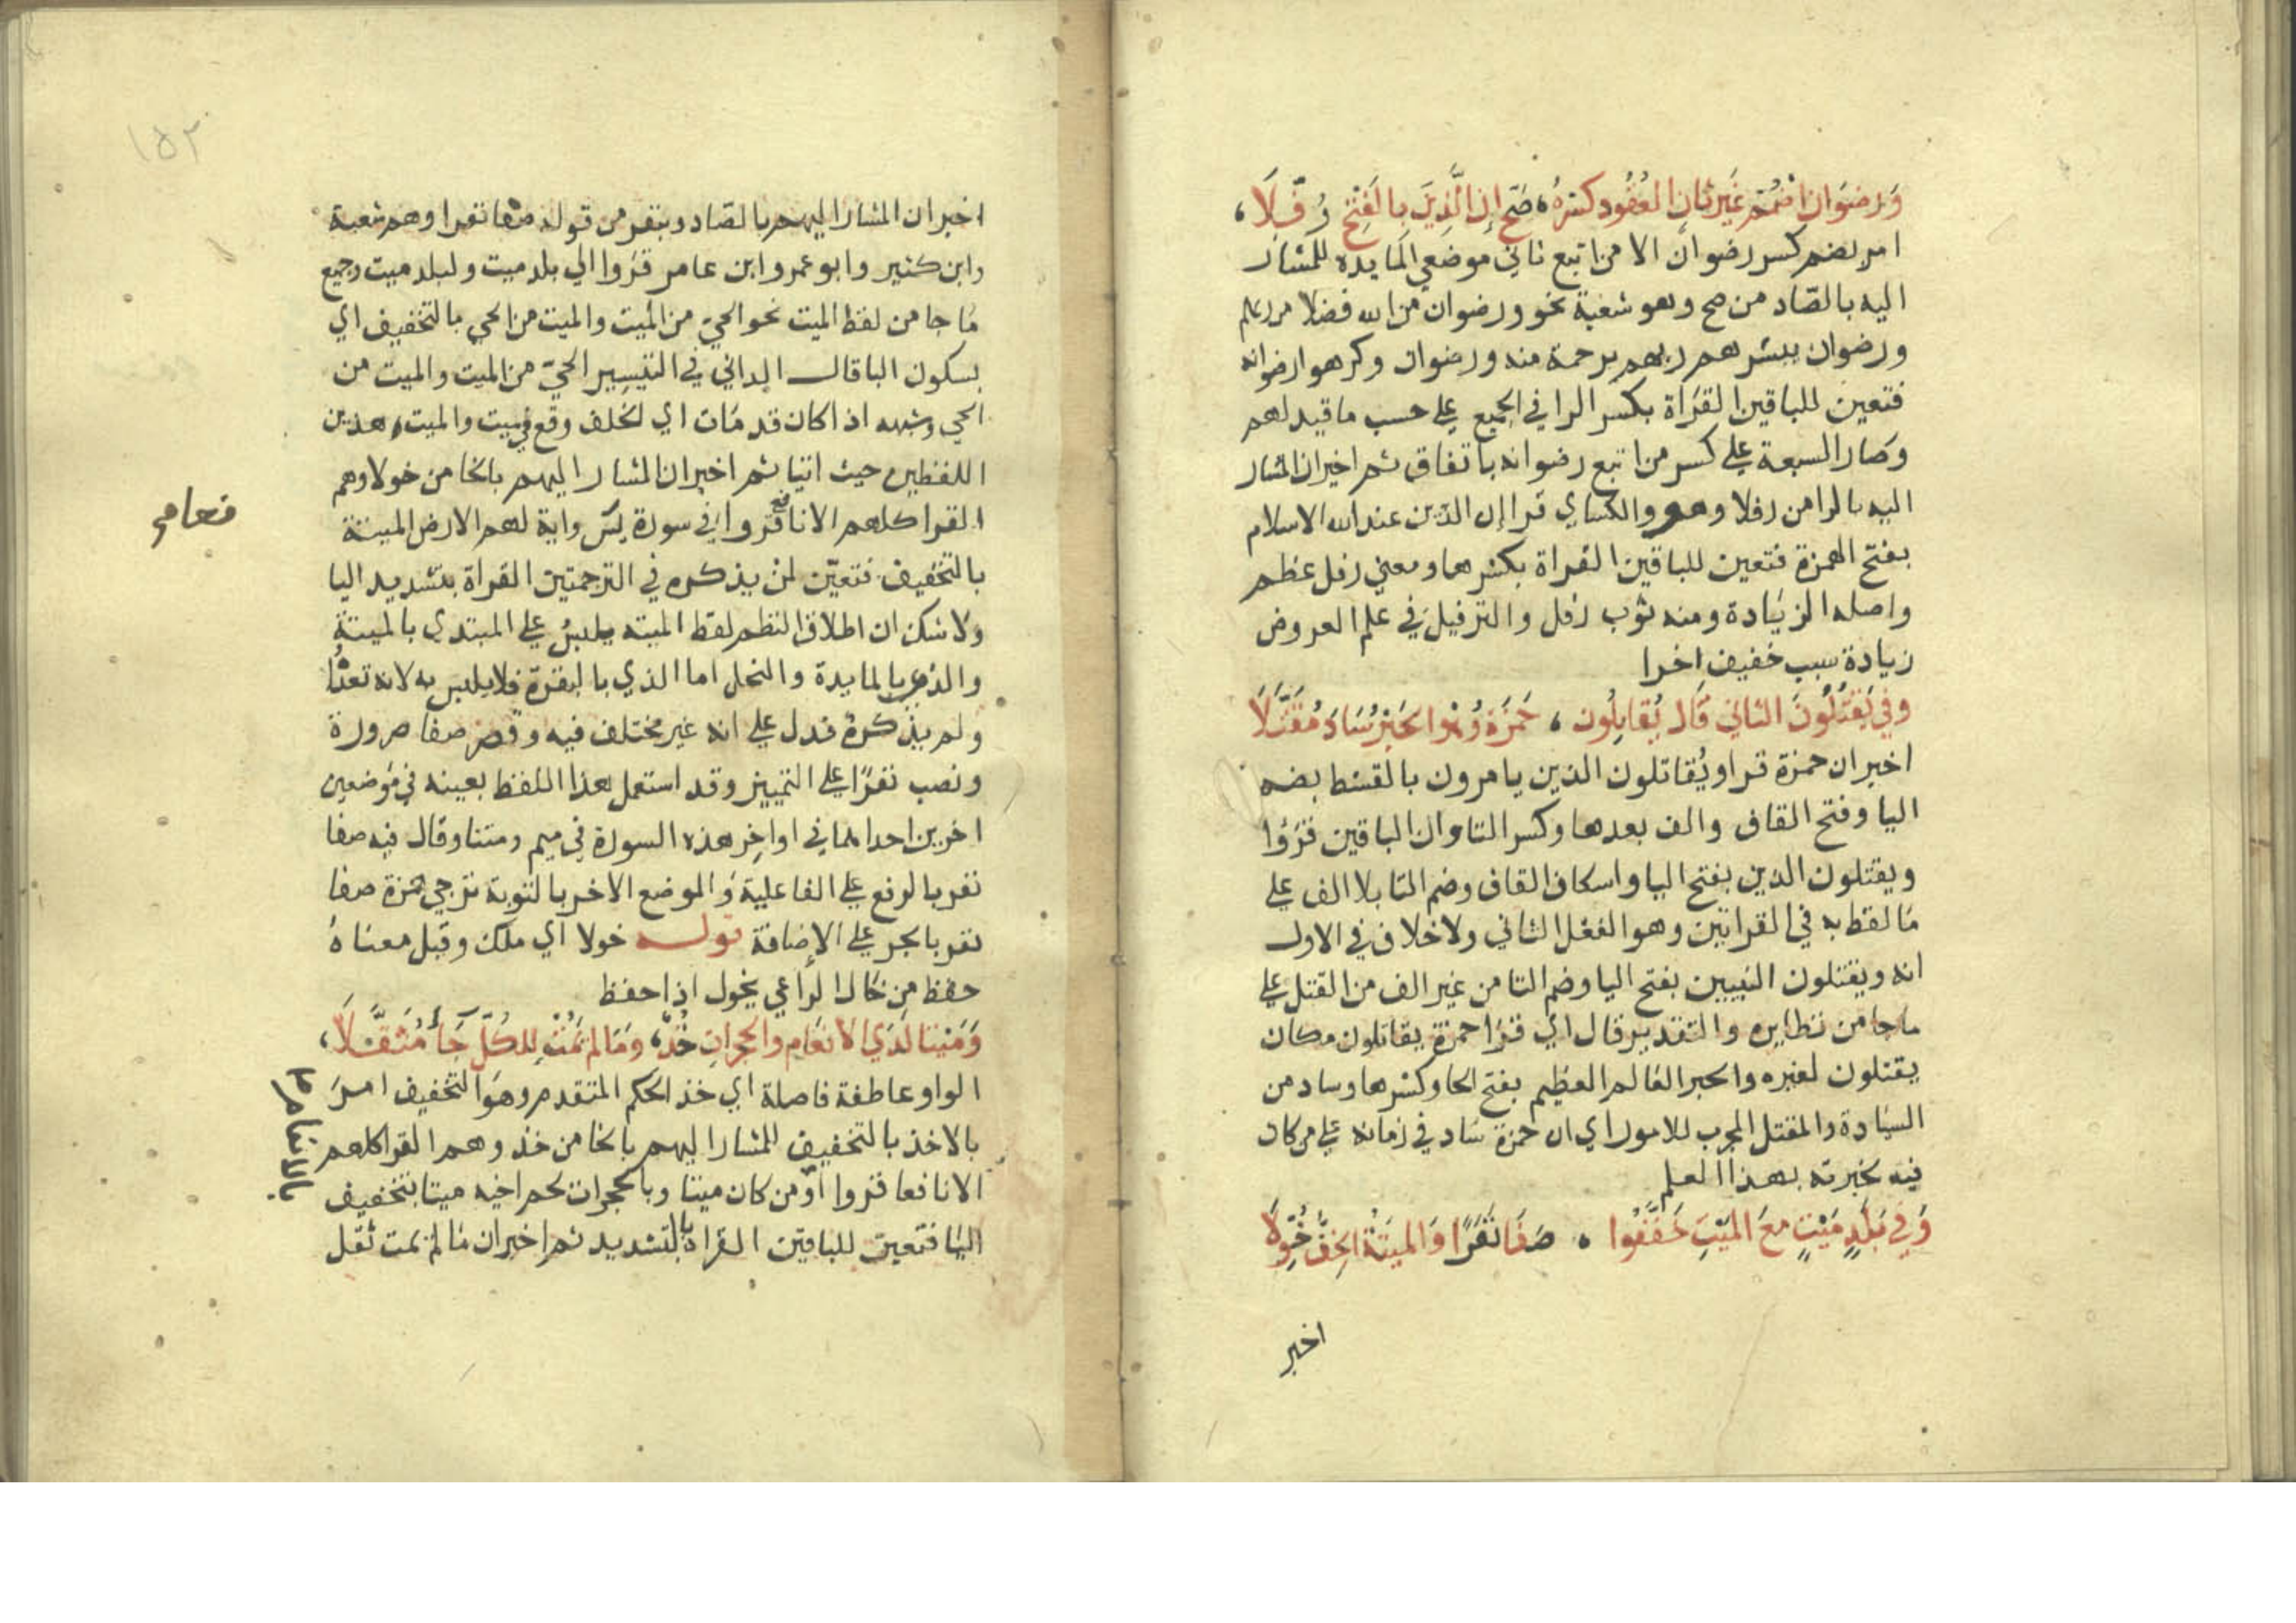 وَرِضْوَانٌ اضْمُمْ غَيْرَ ثَانِ العُقُودِ كَسْرَهُ، صَحَّ إِنَّ الَّذِينَ بِالفَتْحِ رُفِّلَا،
امر بضم كسر رضوان الا من اتبع ثاني موضعي المايدة للمشار
اليه بالصّاد من صح وهو شعبة نحو ورضوان من الله فضلا من ربهم
ورضوان يبشرهم ربهم برحمة منه ورضوان وكرهوا رضوانه
فتعين للباقين القرَاة بكسر الرا في الجميع على حسب ما قيد لهم
وصَار السبعة على كسر من اتبع رضوانه باتفاق ثم اخبر ان المشار
اليه بالرا من رفلا وهو والكساي قرا إن الدّين عند الله الاسلام
بفتح الهمزة فتعين للباقين القراة بكسرها ومعنى رفل عظم
واصله الزيَادة ومنه ثوب رفل والترفيل في علم العروض
زيادة سبب خفيف اخرا
وفي يَقْتُلُونَ الثاني قَال يُقاتِلُون ، حَمْزَةُ وَهْوَ الحَبْرُ سَادَ مُقَتَّلَا
اخبر ان حمزة قرا ويُقاتلون الذين يامرون بالقسط بضم
اليا وفتح القاف والف بعدها وكسر التا وان الباقين قرَؤا
ويقتلون الذين بفتح اليا واسكان القاف وضم التا بلا الف على
مَا لفظ به في القراتين وهو الفعل الثاني ولا خلاف في الاول
انه ويقتلون النبيين بفتح اليا وضم التا من غير الف من القتل على
ما جا من نظايره والتقدير قال اي قرَا حمزة يقاتلون مكان
يقتلون لغيره والحبر العَالم العظيم بفتح الحا وكسرها وساد من
السيَادة والمقتل المجرب للامور اي ان حمزة سَاد في زمانه على من كان
فيه بخبرته بهذا العلم
وَفي بَلَدٍ مَيْتٍ معَ المَيْتِ خَفَّفُوا ، صَفَا نَفَرًا وَالميتَةُ الخِفُّ خُوِّلَا
اخبر
١٥٢
اخبر ان المشار اليهم بالصّاد وبنفر من قوله صفا نفرا وهم شعبة
وابن كثير وابو عمرو وابن عامر قرَوا الي بلد ميت ولبلد ميت وجميع
مَا جا من لفظ الميت نحو الحيّ من الميت والميت من الحي بالتخفيف اي
بسكون اليا قال الداني في التيسير الحيّ من الميت والميت من
الحي وشبهه اذا كان قد مَات اي الخلف وقع في ميت والميت هذين
اللفظين حيث اتيا ثم اخبر ان المشار اليهم بالخا من خولا وهم
القرا كلهم الا نافع قروا في سورة يسٓ واية لهم الارض الميتة
بالتخفيف فتعيّن لمن يذكره في الترجمتين القراة بتشديد اليا
ولا شك ان اطلاق النظم لفظ الميتة يلبسُ على المبتدي بالميتة
والدم بالمايدة والنحل اما الذي بالبقرة فلا يلبس به لانه تعدّا
ولم يذكرهُ فدل على انه غير مختلف فيه وقصر صفا ضرورة
ونصب نفرًا على التمييز وقد استعمل هذا اللفظ بعينه في مَوضعين
اخرين احداهما في اواخِر هذه السورة في ميم ومتنا وقال فيه صفا
نفر بالرفع على الفاعلية وَالموضع الاخر بالتوبة ترجي همزة صفا
نفر بالجر على الإضافة قوله خولا اي ملك وقيل معنَاهُ
حفظ من خَال الرَاعي يخول اذا حفظ
وَمَيْتا لَدَي الانعَام والحجراتِ خُذْ، وَمَا لم يَمُتْ لِلكُلِّ جَآ مُثَقَّلَا،
الواو عاطفة فاصلة اي خذ الحكم المتقدم وهوَ التخفيف امرَ
بالاخذ بالتخفيف للمشار اليهم بالخا من خذ وهم القرا كلهم
الا نافعا قروا أوَمن كان ميتا وبالحجرات لحم اخيه ميتا بتخفيف
اليَا فتعين للباقين القراة بالتشديد ثم اخبر ان مَا لم يمت ثقل
بالانعام